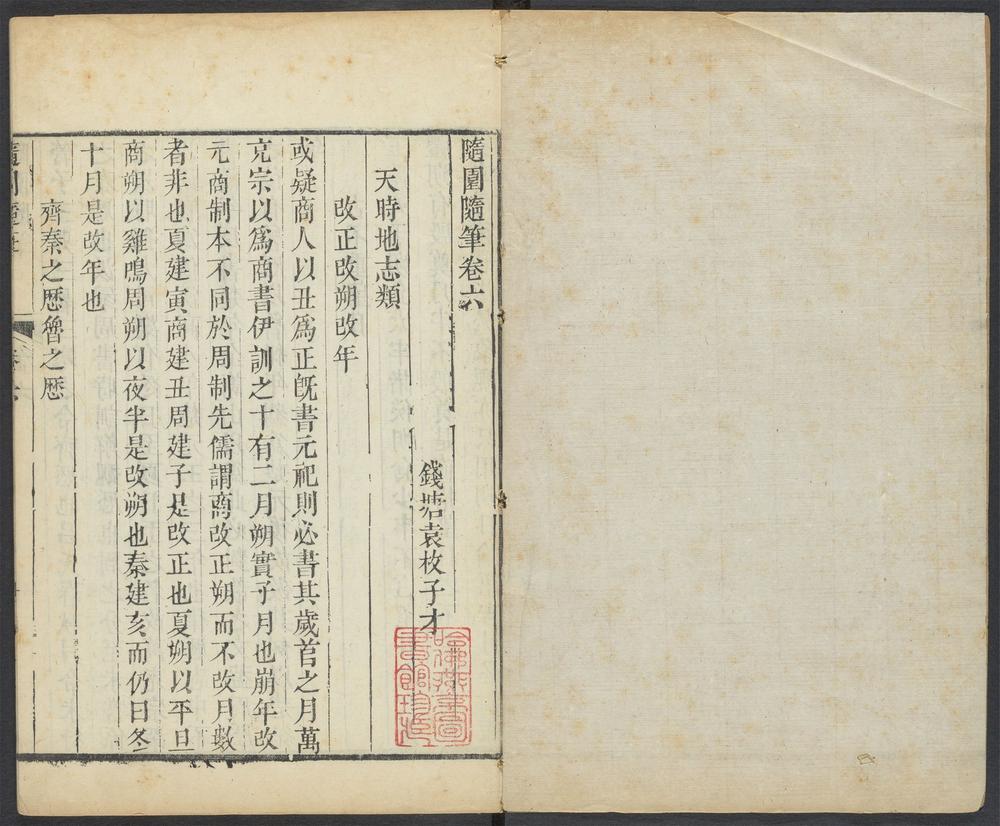 隨園隨筆卷六
錢塘袁枚子才
天時地志類
改正改朔改年
或疑商人以丑爲正旣書元祀則必書其歲首之月萬
充宗以爲商書伊訓之十有二月朔實子月也崩年改
元商制本不同於周制先儒謂商改正朔而不改月數
者非也夏建寅商建丑周建子是改正也夏朔以平旦
商朔以雞鳴周朔以夜半是改朔也秦建亥而仍曰冬
十月是改年也
齊秦之歷魯之歷
哈佛燕京圖書館珍藏